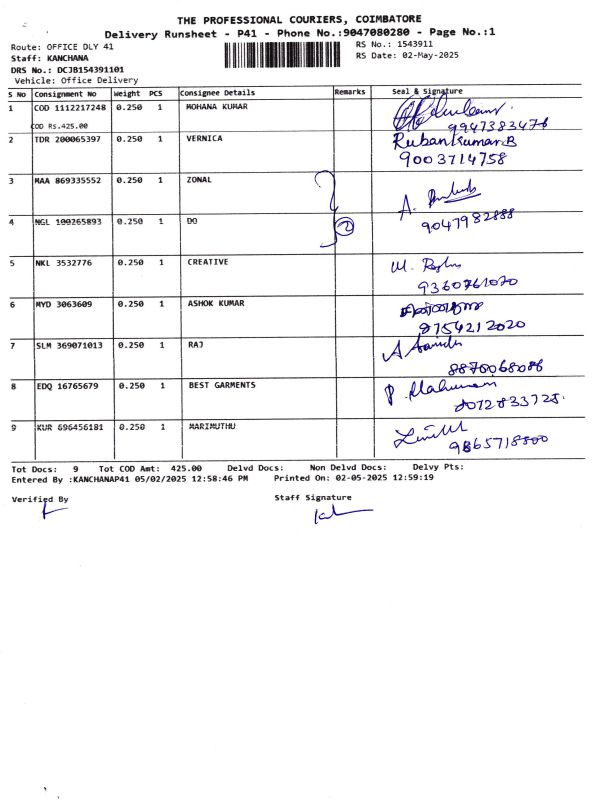 THE PROFESSIONAL COURIERS, COIMBATORE
Delivery Runsheet - P41 - Phone No.:9047080280 - Page No.:1
Route: OFFICE DLY 41
RS No.: 1543911
Staff: KANCHANA
RS Date: 02-May-2025
DRS No.: DCJB154391101
Vehicle: Office Delivery
S No Consignment No Weight PCS Consignee Details Remarks Seal & Signature
1 COD 1112217248 0.250 1 MOHANA KUMAR
COD Rs.425.00 9947383476
2 TDR 200065397 0.250 1 VERNICA Rubankumar.B
9003714758
3 MAA 869335552 0.250 1 ZONAL
4 NGL 100265893 0.250 1 DO 2 9047982888
5 NKL 3532776 0.250 1 CREATIVE
9360761070
6 MYD 3063609 0.250 1 ASHOK KUMAR
9754212020
7 SLM 369071013 0.250 1 RAJ
8870068086
8 EDQ 16765679 0.250 1 BEST GARMENTS
8072833728
9 KUR 696456181 0.250 1 MARIMUTHU
9865718800
Tot Docs: 9 Tot COD Amt: 425.00 Delvd Docs: Non Delvd Docs: Delvy Pts:
Entered By :KANCHANAP41 05/02/2025 12:58:46 PM Printed On: 02-05-2025 12:59:19
Verified By Staff Signature